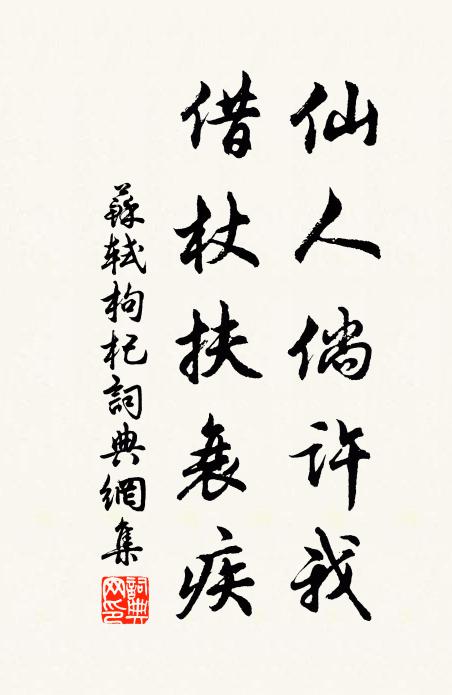 仙人倘許我
借杖扶衰疾
蘇軾枸杞詞典網集
詞典網印